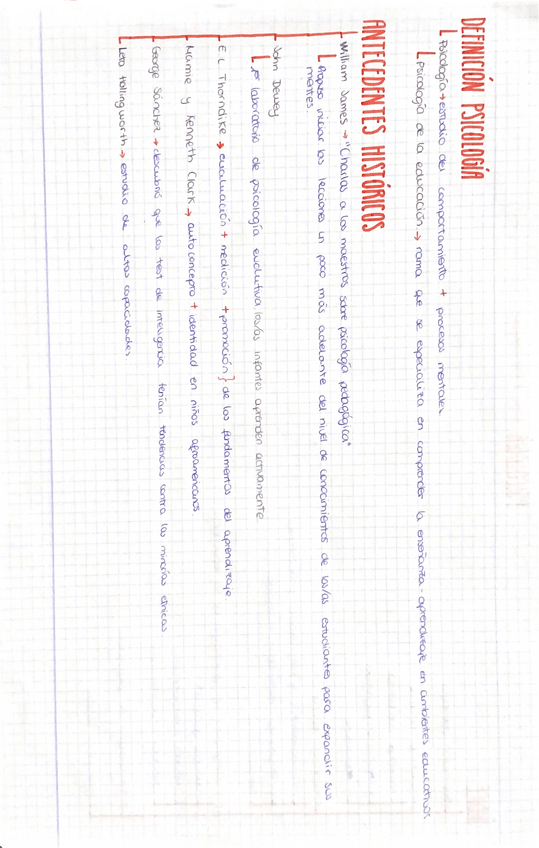 DEFINICIÓN PSICOLOGÍA
Psicología → estudio del comportamiento + procesos mentales
Psicología de la educación → rama que se especializa en comprender la enseñanza - aprendizaje en ambientes educativos
ANTECEDENTES HISTÓRICOS
William James → "Charlas a los maestros sobre psicología pedagógica"
Propuso iniciar las lecciones un poco más adelante del nivel de conocimientos de los/as estudiantes para expandir sus
mentes
John Dewey
1er laboratorio de psicología evolutiva los/as infantes aprenden activamente
E.L Thorndike → evaluación + medición + promoción } de los fundamentos del aprendizaje
Mamie y Kenneth Clark → autoconcepto + identidad en niños afroamericanos.
George Sánchez → descubrió que los test de inteligencia tenían tendencias contra las minorías étnicas
Leta Hollingworth → estudio de altas capacidades